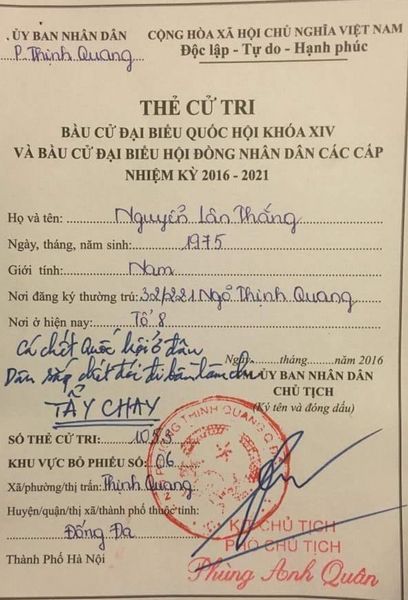 ỦY BAN NHÂN DÂN
P. Thịnh Quang
CỘNG HÒA XÃ HỘI CHỦ NGHĨA VIỆT NAM
Độc lập - Tự do - Hạnh phúc
THẺ CỬ TRI
BẦU CỬ ĐẠI BIỂU QUỐC HỘI KHÓA XIV
VÀ BẦU CỬ ĐẠI BIỂU HỘI ĐỒNG NHÂN DÂN CÁC CẤP
NHIỆM KỲ 2016 - 2021
Họ và tên: Nguyễn Lân Thắng
Ngày, tháng, năm sinh: 1975
Giới tính: Nam
Nơi đăng ký thường trú: 32/221 Ngõ Thịnh Quang
Nơi ở hiện nay: Tổ 8
Cá chết Quốc hội ở đâu
Dân sắp chết đói đi bầu làm chi
TẨY CHAY
Ngày......tháng......năm 2016
TM. ỦY BAN NHÂN DÂN
CHỦ TỊCH
(Ký tên và đóng dấu)
SỐ THẺ CỬ TRI: 1053
KHU VỰC BỎ PHIẾU SỐ: 06
Xã/phường/thị trấn: Thịnh Quang
Huyện/quận/thị xã/thành phố thuộc tỉnh:
Đống Đa
Thành Phố Hà Nội
PHƯỜNG THỊNH QUANG
KT. CHỦ TỊCH
PHÓ CHỦ TỊCH
Phùng Anh Quân